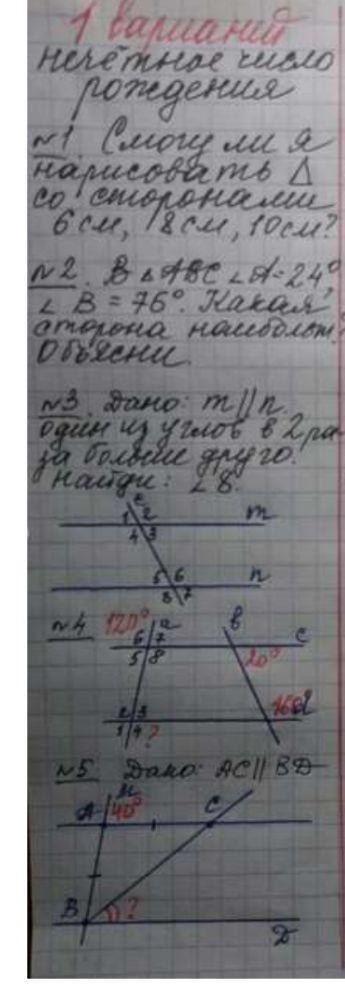 1 вариант
нечётное число
рождения
№1. Смогу ли я
нарисовать Δ
со сторонами
6 см, 8 см, 10 см?
№2. В ΔАВС ∠А=24°
∠ В = 76°. Какая
сторона наибольш?
Объясни.
№3. Дано: m||n.
один из углов в 2 ра-
за больше друго.
Найди: ∠8.
c
1 2 m
4 3
5 6 n
8 7
№4 120° a b c
6 7
5 8 20°
2 3 160° d
1 4 ?
№5 Дано: AC || BD
M
A 40° C
B ?
D